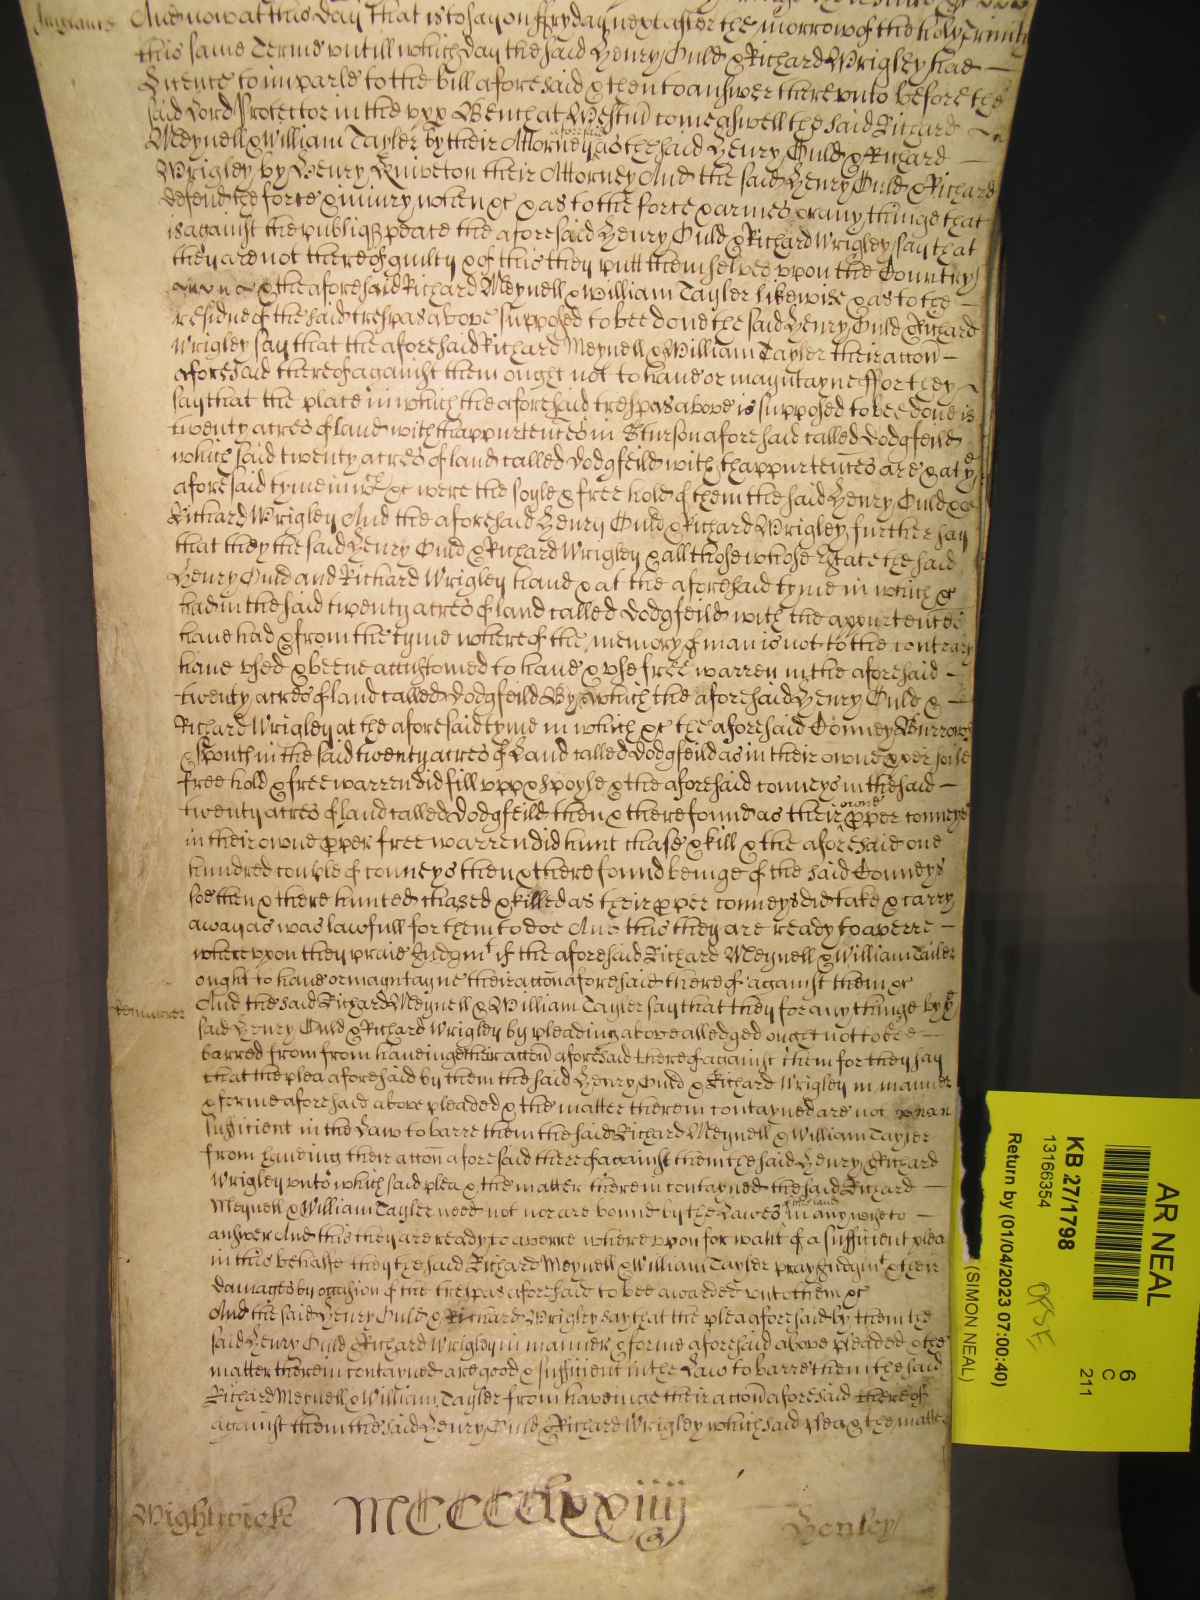 And now at this day that is to say on ffryday next after the morrow of the holy Trinity
this same Terme untill which day the said Henry Ould & Richard Wrigley had
Licence to imparle to the bill aforesaid & then to answer there unto before the
said Lord Protector in the upp Bench at Westm come aswell the said Richard
Meynell & William Tayler by their Attorney aforesaid as the said Henry Ould & Richard
Wrigley by Henry Kniveton their Attorney And the said Henry Ould & Richard
defend the force & iniury when &c & as to the force & armes or any thinge that
is against the publiq peace the aforesaid Henry Ould & Richard Wrigley say that
they are not thereof guilty & of this they putt themselves upon the Countrey
& the aforesaid Richard Meynell & William Tayler likewise & as to the
residue of the said trespas above supposed to bee done the said Henry Ould & Richard
Wrigley say that the aforesaid Richard Meynell & William Tayler their accon
aforesaid thereof against them ought not to have or mayntayne ffor they
say that the place in which the aforesaid trespas above is supposed to bee done is
twenty acres of land with thappurtences in Sturson aforesaid called Dodgfeild
which said twenty acres of land called Dodgfeild with thappurtences are & at ye
aforesaid tyme in wch &c were the soyle & free hold of them the said Henry Ould &
Richard Wrigley And the aforesaid Henry Ould & Richard Wrigley further say
that they the said Henry Ould & Richard Wrigley & all those whose Estate the said
Henry Ould and Richard Wrigley have & at the aforesaid tyme in which &c
had in the said twenty acres of land called Dodgfeild with the appurtences
have had & from the tyme whereof the memory of man is not to the contrary
have used & beene accustomed to have & use free warren in the aforesaid
twenty acres of land called Dodgfeild By which the aforesaid Henry Ould &
Richard Wrigley at the aforesaid tyme in which &c the aforesaid Conney Burrows
& in the said twenty acres of Land called Dodgfeild as in their owne pper soile
free hold & free warren did fill upp & spoyle & the aforesaid conneys in the said
twenty acres of land called Dodgfeild then & there found as their owne pper conneys
in their owne pper free warren did hunt chase & kill & the aforesaid one
hundred couple of conneys then & there found beinge of the said Conneys
soe then & there hunted chased & killed as their pper conneys did take & carry
away as was lawfull for them to doe And this they are ready to averre
where upon they praie Judgmt if the aforesaid Richard Meynell & William Tailer
ought to have or mayntayne their accon aforesaid thereof against them &c
demurrer And the said Richard Meynell & William Tayler say that they for any thinge by ye
said Henry Ould & Richard Wrigley by pleading above alledged ought not to bee
barred from from haveinge their accon aforesaid thereof against them for they say
that the plea aforesaid by them the said Henry Ould & Richard Wrigley in manner
& forme aforesaid above pleaded & the matter therein contayned are not
sufficient in the Law to barre them the said Richard Meynell & William Tayler
from haveing their accon aforesaid thereof against them the said Henry & Richard
Wrigley unto which said plea & the matter therein contayned the said Richard
Meynell & William Tayler need not nor are bound by the Lawes in any wise to
answer And this they are ready to averre where upon for want of a sufficient plea
in this behalfe they the said Richard Meynell & William Tayler pray Judgmt & their
damages by occasion of the trespas aforesaid to bee awarded unto them &c
And the said Henry Ould & Richard Wrigley say that the plea aforesaid by them the
said Henry Ould & Richard Wrigley in manner & forme aforesaid above pleaded & the
matter therein contayned are good & sufficient in the Law to barre them the said
Richard Meynell & William Tayler from haveinge their accon aforesaid thereof
against them the said Henry Ould & Richard Wrigley which said plea & the matter
Wightwicke MCCCCClxxiiij Henley
AR NEAL
6
C
211
KB 27/1798
13166354
OFSE
Return by (01/04/2023 07:00:40)
(SIMON NEAL)